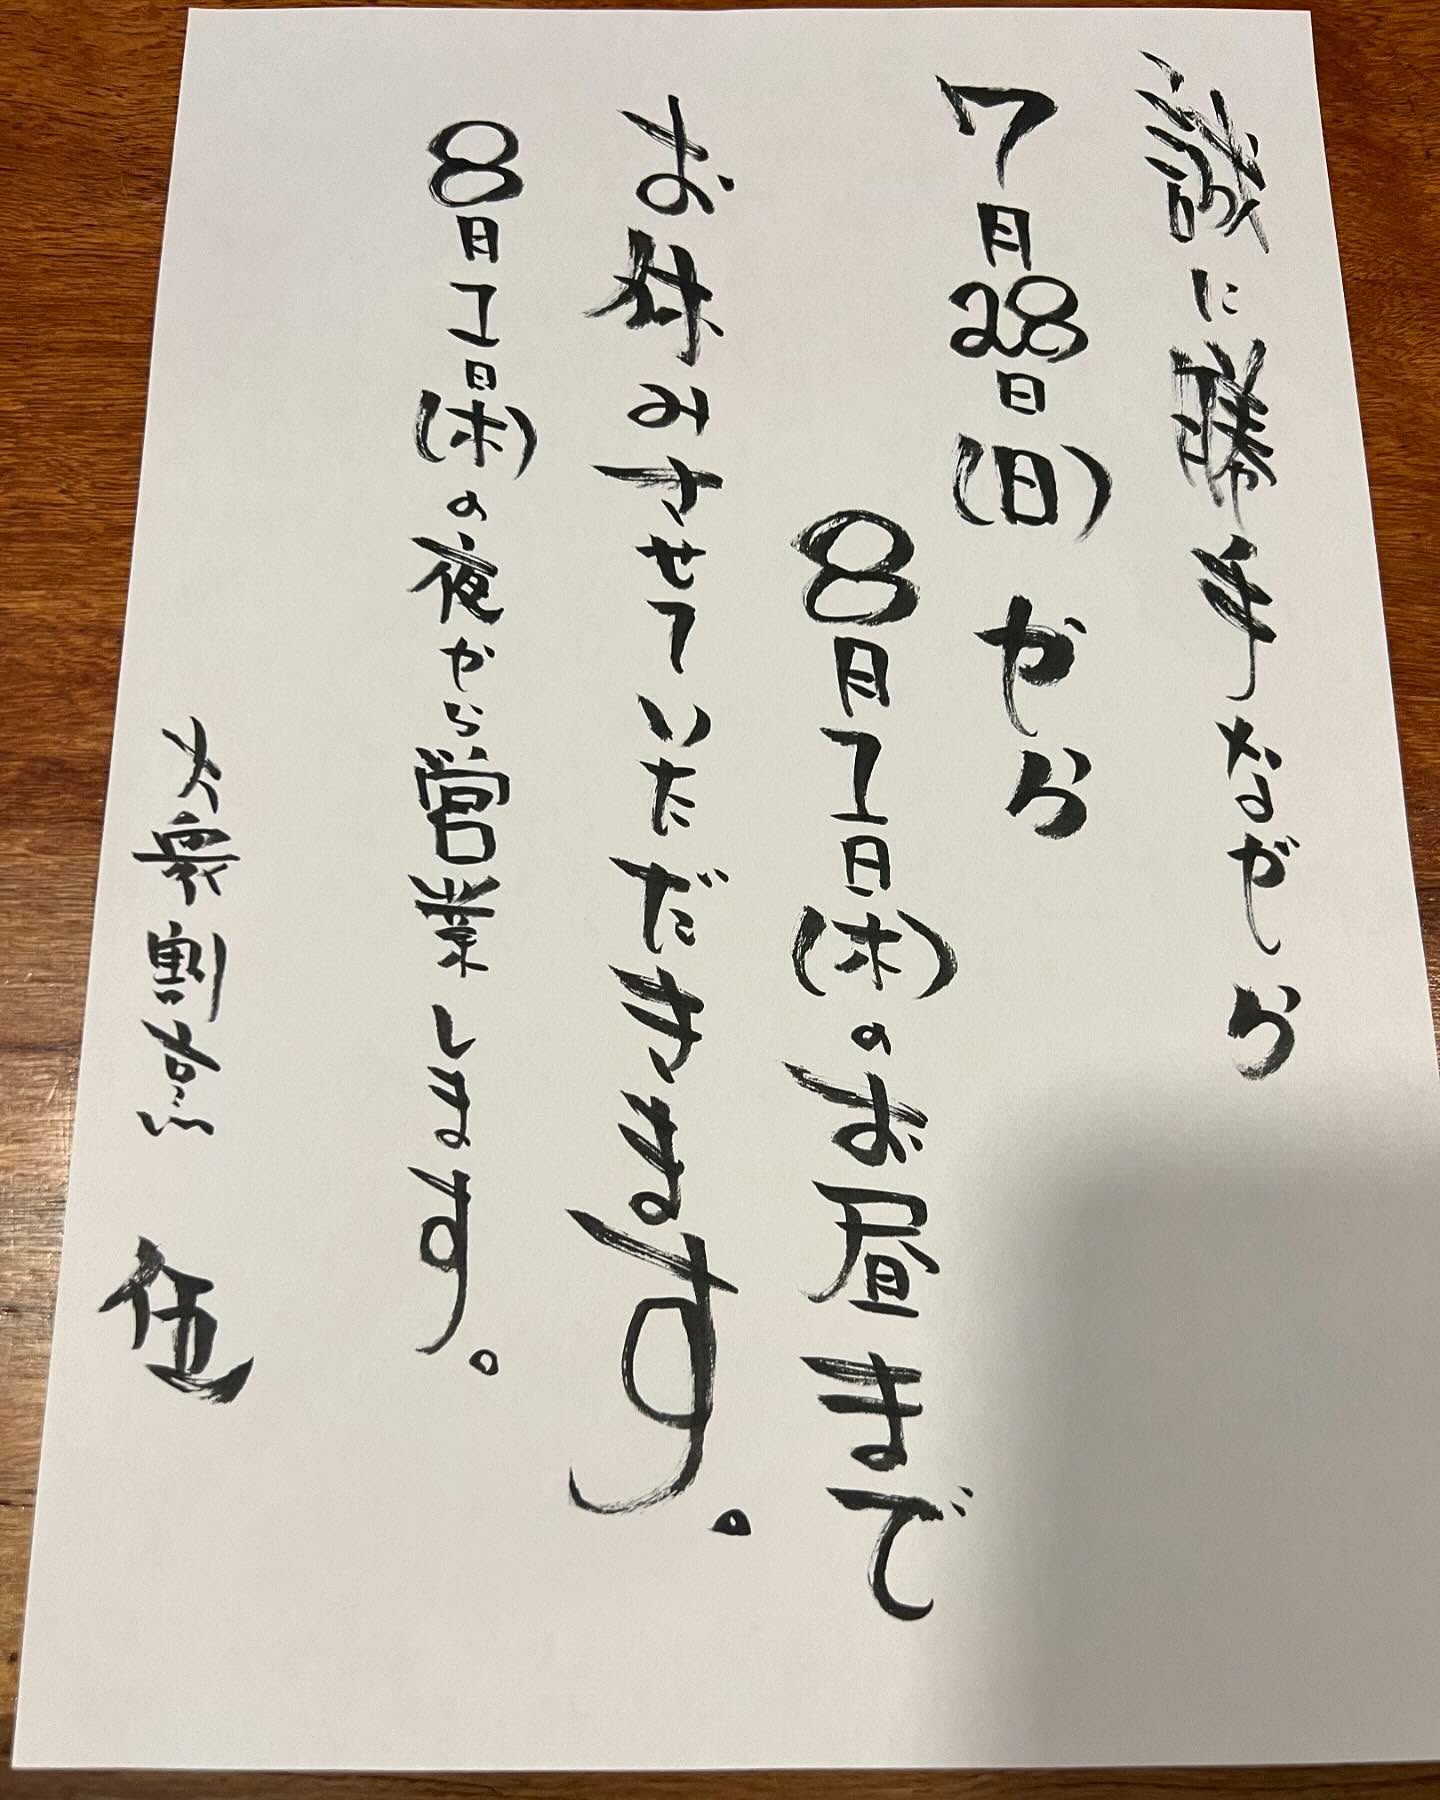 誠に勝手ながら
7月28日(日)から
8月1日(木)のお昼まで
お休みさせていただきます。
8月1日(木)の夜から営業します。
大衆割烹 伍